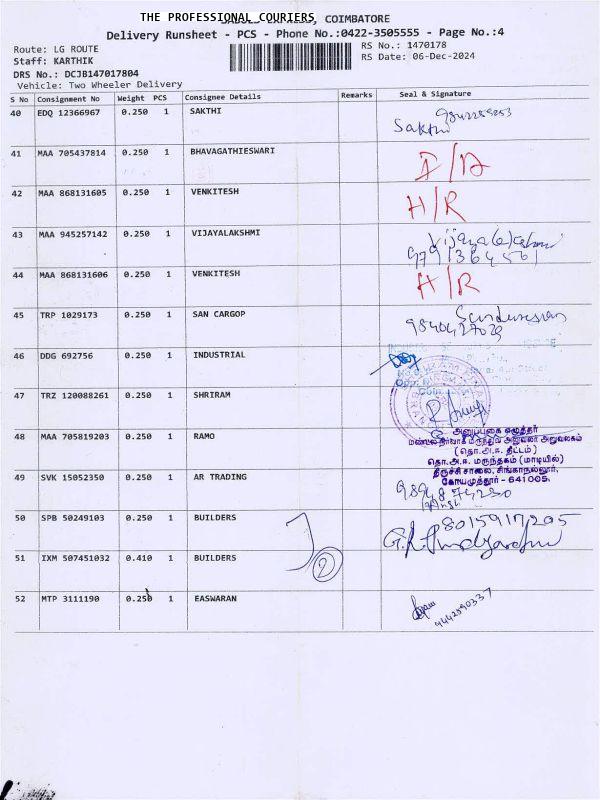 THE PROFESSIONAL COURIERS, COIMBATORE
Delivery Runsheet - PCS - Phone No.:0422-3505555 - Page No.:4
Route: LG ROUTE
RS No.: 1470178
Staff: KARTHIK
RS Date: 06-Dec-2024
DRS No.: DCJB147017804
Vehicle: Two Wheeler Delivery
S No Consignment No Weight PCS Consignee Details Remarks Seal & Signature
40 EDQ 12366967 0.250 1 SAKTHI
Sakthi
41 MAA 705437814 0.250 1 BHAVAGATHIESWARI
42 MAA 868131605 0.250 1 VENKITESH H/R
43 MAA 945257142 0.250 1 VIJAYALAKSHMI
44 MAA 868131606 0.250 1 VENKITESH H/R
45 TRP 1029173 0.250 1 SAN CARGOP
46 DDG 692756 0.250 1 INDUSTRIAL
47 TRZ 120088261 0.250 1 SHRIRAM
48 MAA 705819203 0.250 1 RAMO
அனுப்புகை எழுத்தர்
(தொ.அ.ஈ. திட்டம்)
தொ.அ.ஈ. மருந்தகம் (மாடியில்)
திருச்சி சாலை, சிங்காநல்லூர்,
கோயமுத்தூர் - 641005.
49 SVK 15052350 0.250 1 AR TRADING
50 SPB 50249103 0.250 1 BUILDERS
51 IXM 507451032 0.410 1 BUILDERS
2
52 MTP 3111190 0.250 1 EASWARAN